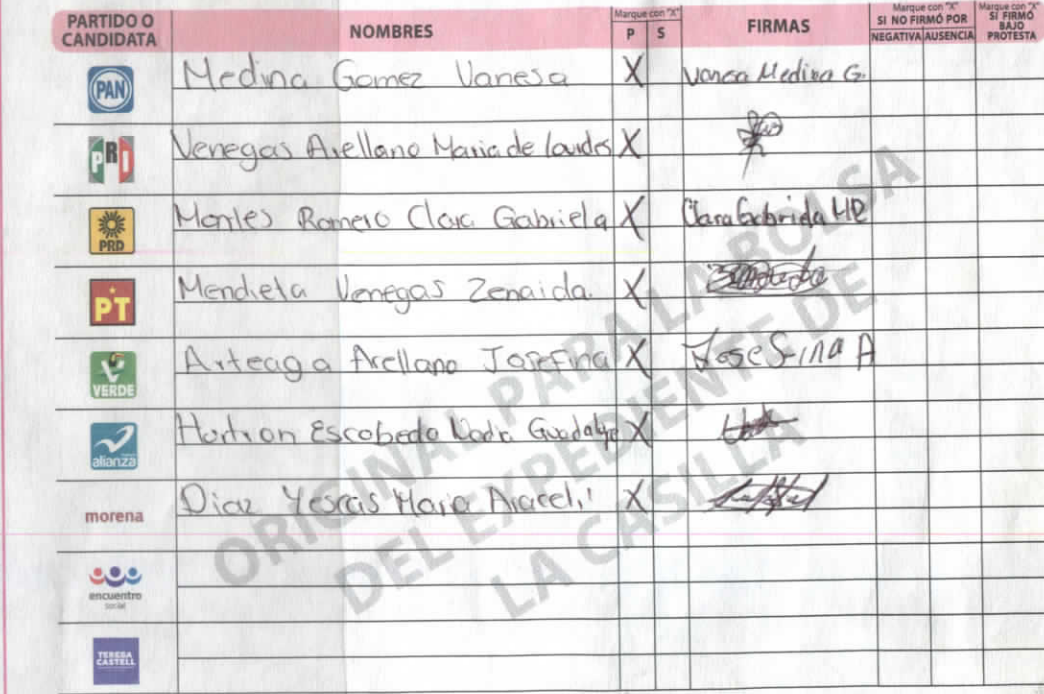 PARTIDO O CANDIDATA NOMBRES Marque con "X" P S FIRMAS Marque con "X" SI NO FIRMÓ POR NEGATIVA AUSENCIA Marque con "X" SI FIRMÓ BAJO PROTESTA
PAN Medina Gomez Vanesa X Medina G.
PRI Venegas Arellano Maria de Lourdes X
PRD Montes Romero Clara Gabriela X Clara Gabriela MR
PT Mendieta Venegas Zenaida. X
VERDE Arteaga Arellano Josefina X Josefina A
alianza Escobedo X
morena Diaz Yescas Maria Araceli X
encuentro social
TERESA CASTELL
ORIGINAL PARA LA BOLSA
DEL EXPEDIENTE DE
LA CASILLA